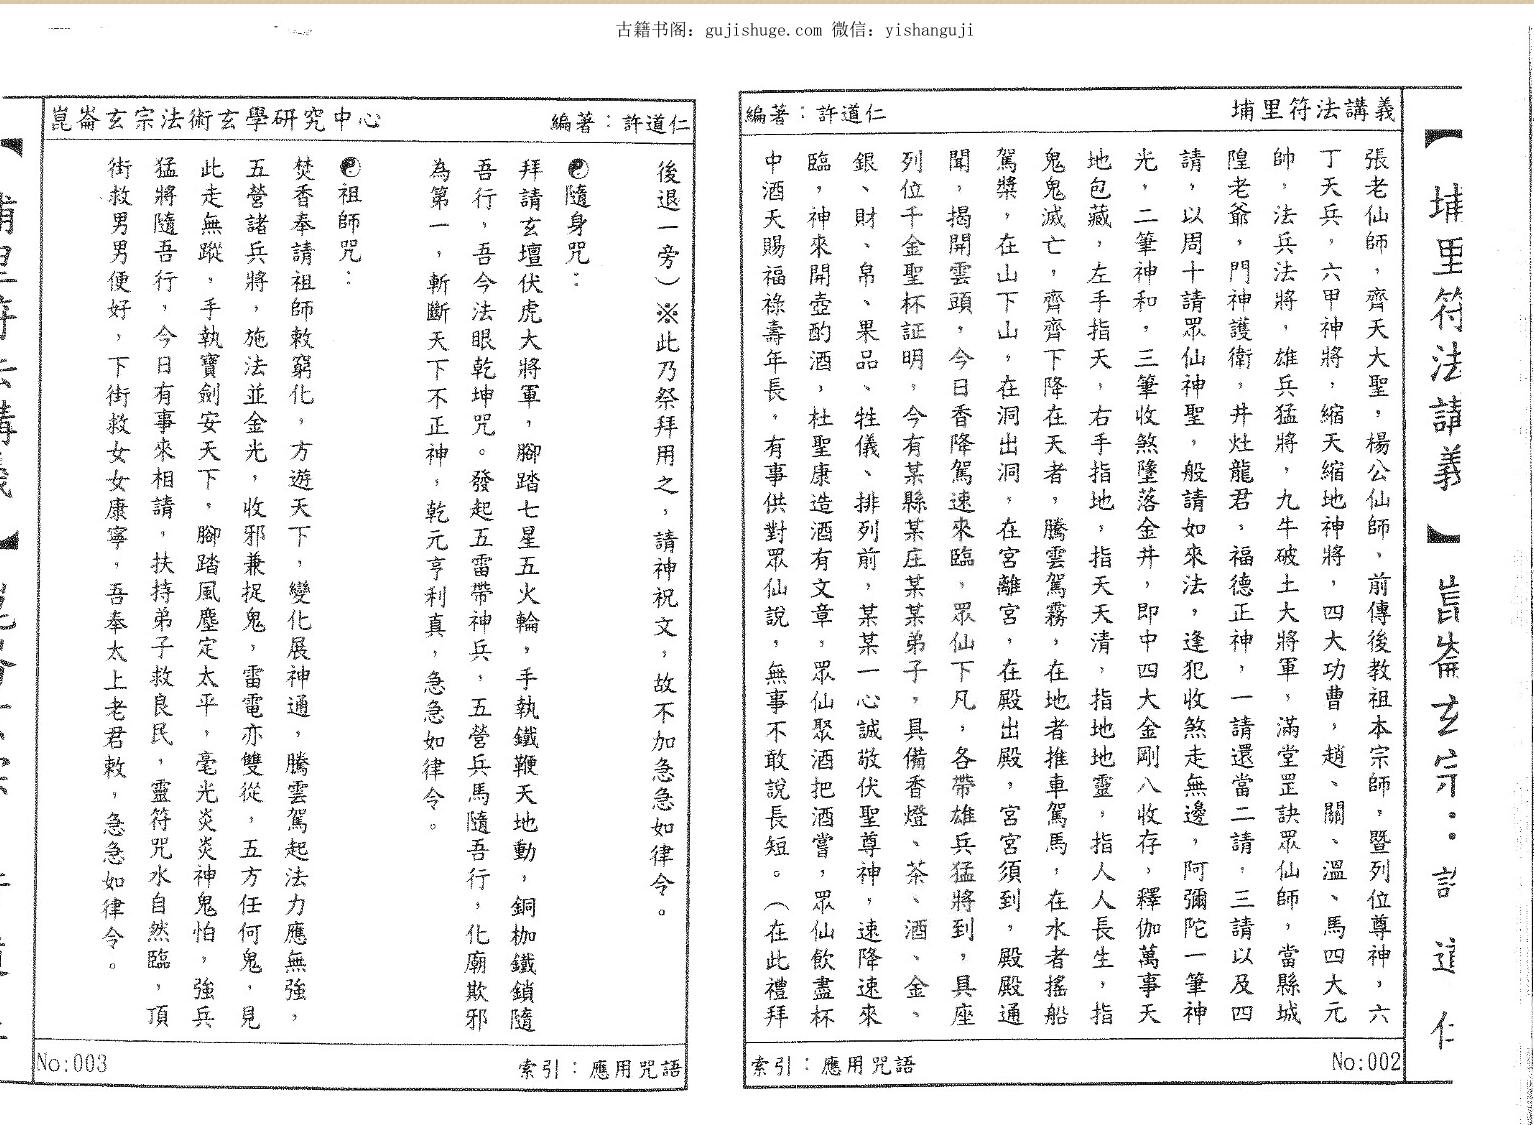 古籍书阁：gujishuge.com 微信：yishanguji
【埔里符法講義】崑崙玄宗：許道仁
埔里符法講義
編著：許道仁
張老仙師，齊天大聖，楊公仙師，前傳後教祖本宗師，暨列位尊神，六
丁天兵，六甲神將，縮天縮地神將，四大功曹，趙、關、溫、馬四大元
帥，法兵法將，雄兵猛將，九牛破土大將軍，滿堂罡訣眾仙師，當縣城
隍老爺，門神護衛，井灶龍君，福德正神，一請還當二請，三請以及四
請，以周十請眾仙神聖，般請如來法，逢犯收煞走無邊，阿彌陀一筆神
光，二筆神和，三筆收煞墬落金井，即中四大金剛八收存，釋伽萬事天
地包藏，左手指天，右手指地，指天天清，指地地靈，指人人長生，指
鬼鬼滅亡，齊齊下降在天者，騰雲駕霧，在地者推車駕馬，在水者搖船
駕槳，在山下山，在洞出洞，在宮離宮，在殿出殿，宮宮須到，殿殿通
聞，揭開雲頭，今日香降駕速來臨，眾仙下凡，各帶雄兵猛將到，具座
列位千金聖杯証明，今有某縣某庄某某弟子，具備香燈、茶、酒、金、
銀、財、帛、果品、牲儀、排列前，某某一心誠敬伏聖尊神，速降速來
臨，神來開壺酌酒，杜聖康造酒有文章，眾仙聚酒把酒嘗，眾仙飲盡杯
中酒天賜福祿壽年長，有事供對眾仙說，無事不敢說長短。（在此禮拜
索引：應用咒語
No:002
崑崙玄宗法術玄學研究中心
編著：許道仁
後退一旁）※此乃祭拜用之，請神祝文，故不加急急如律令。
☯隨身咒：
拜請玄壇伏虎大將軍，腳踏七星五火輪，手執鐵鞭天地動，銅枷鐵鎖隨
吾行，吾今法眼乾坤咒。發起五雷帶神兵，五營兵馬隨吾行，化廟欺邪
為第一，斬斷天下不正神，乾元亨利真，急急如律令。
☯祖師咒：
焚香奉請祖師敕窮化，方遊天下，變化展神通，騰雲駕起法力應無強，
五營諸兵將，施法並金光，收邪兼捉鬼，雷電亦雙從，五方任何鬼，見
此走無蹤，手執寶劍安天下，腳踏風塵定太平，毫光炎炎神鬼怕，強兵
猛將隨吾行，今日有事來相請，扶持弟子救良民，靈符咒水自然臨，頂
街救男男便好，下街救女女康寧，吾奉太上老君敕，急急如律令。
索引：應用咒語
No:003